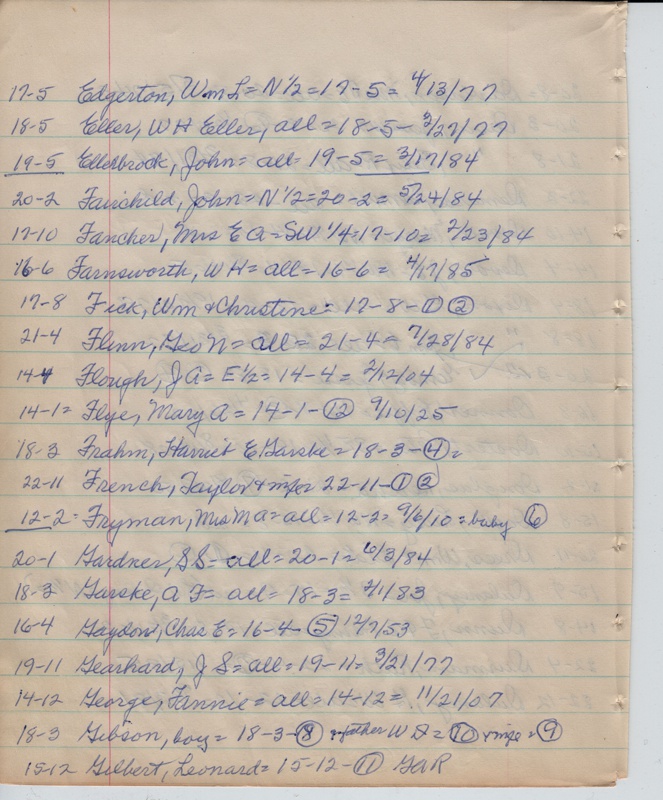 17-5 Edgerton, Wm L = N 1/2 = 17-5 = 4/13/77
18-5 Eller, W H Eller, all = 18-5 - 3/27/77
19-5 Ellerbrock, John = all = 19-5 = 3/17/84
20-2 Fairchild, John = N 1/2 = 20-2 = 5/24/84
17-10 Fancher, Mrs E A = SW 1/4 = 17-10 = 2/23/84
16-6 Farnsworth, W H = all = 16-6 = 4/17/85
17-8 Fick, Wm & Christine = 17-8 - ① ②
21-4 Flinn, Geo N = all = 21-4 = 7/28/84
14-4 Flough, J A = E 1/2 = 14-4 = 2/12/04
14-1 = Flye, Mary A = 14-1 - ⑫ 9/10/25
18-3 Frahm, Harriet E Garske = 18-3 - ④ =
22-11 French, Taylor & wife 22-11 - ① ②
12-2 = Fryman, Mrs M A = all = 12-2 = 9/6/10 = baby ⑥
20-1 Gardner, S S = all = 20-1 = 6/3/84
18-3 Garske, A F = all = 18-3 = 2/1/83
16-4 Gaydow, Chas E = 16-4 - ⑤ 12/7/53
19-11 Gearhard, J S = all = 19-11 = 3/21/77
14-12 George, Fannie = all = 14-12 = 11/21/07
18-3 Gibson, boy = 18-3 - ⑧ father W A = ⑩ & wife = ⑨
15-12 Gilbert, Leonard = 15-12 - ⑪ GAR